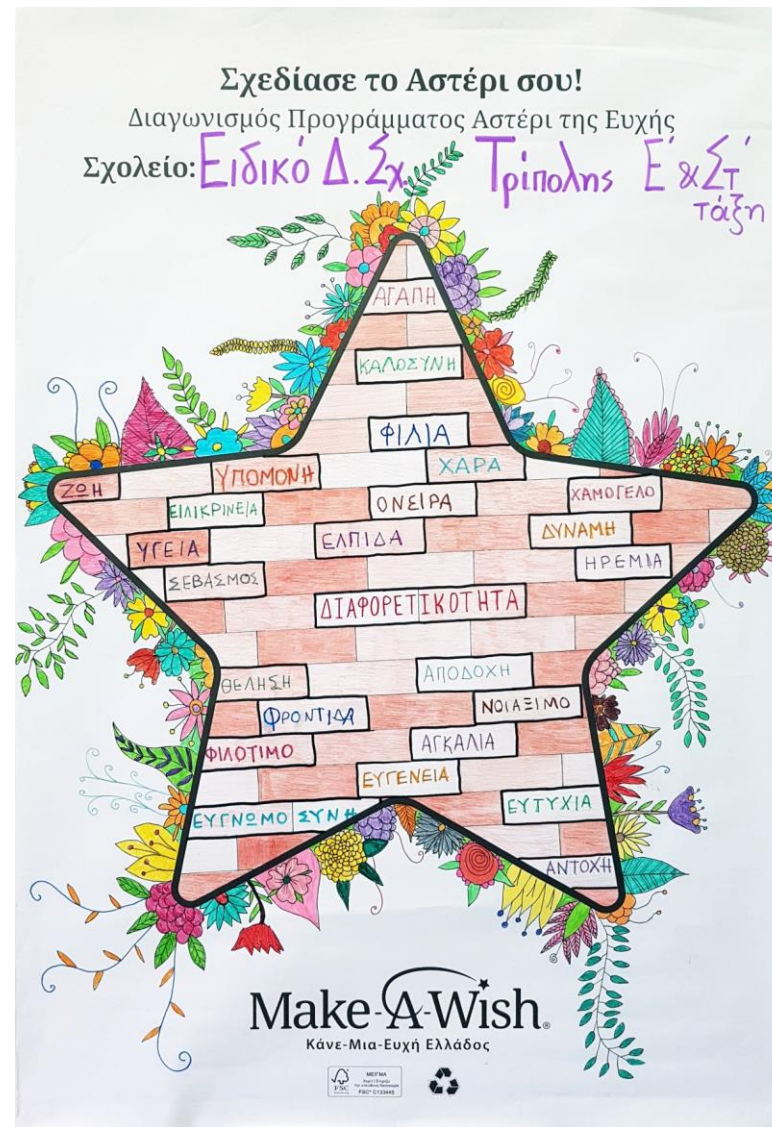 Σχεδίασε το Αστέρι σου!
Διαγωνισμός Προγράμματος Αστέρι της Ευχής
Σχολείο: Ειδικό Δ. Σχ. Τρίπολης Ε' & Στ'
τάξη
ΑΓΑΠΗ
ΚΑΛΟΣΥΝΗ
ΦΙΛΙΑ
ΥΠΟΜΟΝΗ ΧΑΡΑ
ΖΩΗ ΧΑΜΟΓΕΛΟ
ΕΙΛΙΚΡΙΝΕΙΑ ΟΝΕΙΡΑ
ΥΓΕΙΑ ΕΛΠΙΔΑ ΔΥΝΑΜΗ
ΣΕΒΑΣΜΟΣ ΗΡΕΜΙΑ
ΔΙΑΦΟΡΕΤΙΚΟΤΗΤΑ
ΘΕΛΗΣΗ ΑΠΟΔΟΧΗ
ΦΡΟΝΤΙΔΑ ΝΟΙΑΞΙΜΟ
ΦΙΛΟΤΙΜΟ ΑΓΚΑΛΙΑ
ΕΥΓΕΝΕΙΑ
ΕΥΓΝΩΜΟΣΥΝΗ ΕΥΤΥΧΙΑ
ΑΝΤΟΧΗ
Make-A-Wish®
Κάνε-Μια-Ευχή Ελλάδος
ΜΕΙΓΜΑ
FSC
FSC® C133445